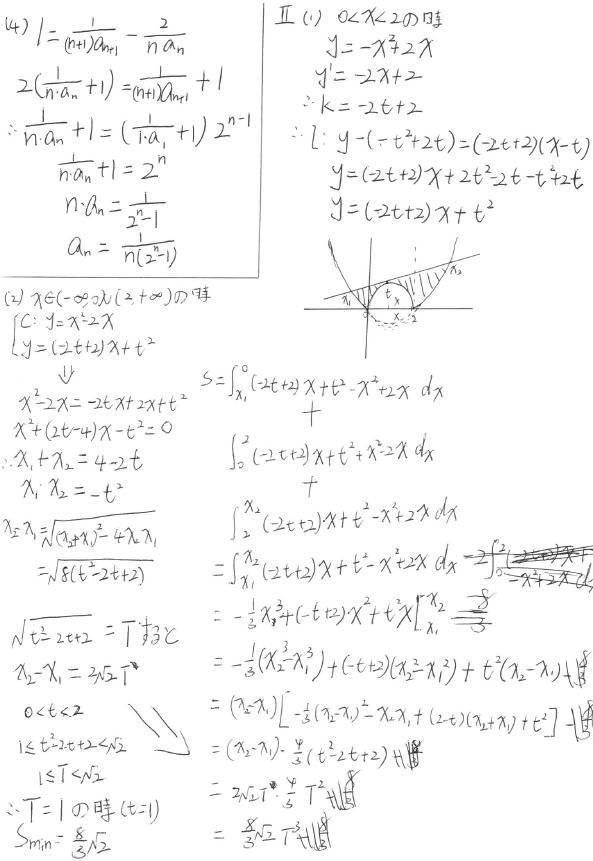 (4) 1 = 1/((n+1)a_{n+1}) - 2/(n a_n)
2(1/(n·a_n) + 1) = 1/((n+1)a_{n+1}) + 1
∴ 1/(n·a_n) + 1 = (1/(1·a_1) + 1) 2^{n-1}
1/(n·a_n) + 1 = 2^n
n·a_n = 1/(2^n-1)
a_n = 1/(n(2^n-1))
II (1) 0<x<2の時
y = -x²+2x
y' = -2x+2
∴ k = -2t+2
∴ l: y-(-t²+2t) = (-2t+2)(x-t)
y = (-2t+2)x + 2t²-2t-t²+2t
y = (-2t+2)x + t²
x₁ t x x x₂
0 2
(2) x∈(-∞,0)∪(2,+∞)の時
C: y = x²-2x
y = (-2t+2)x + t²
⇓
x²-2x = -2tx+2x+t²
x²+(2t-4)x-t² = 0
∴ x₁+x₂ = 4-2t
x₁·x₂ = -t²
x₂-x₁ = √((x₂+x₁)²-4x₂x₁)
= √(8(t²-2t+2))
√(t²-2t+2) = T すると
x₂-x₁ = 2√2 T
0<t<2
1≤t²-2t+2<√2
1≤T<√2
∴ T=1の時 (t=1)
S_min = 8/3 √2
S = ∫_{x₁}^{0} (-2t+2)x+t²-x²+2x dx
+
∫_0^2 (-2t+2)x+t²+x²-2x dx
+
∫_2^{x₂} (-2t+2)x+t²-x²+2x dx
= ∫_{x₁}^{x₂} (-2t+2)x+t²-x²+2x dx
= -1/3 x³+(-t+2)·x²+t²x [_{x₁}^{x₂}
= -1/3(x₂³-x₁³)+(-t+2)(x₂²-x₁²)+t²(x₂-x₁)
= (x₂-x₁)[-1/3(x₂-x₁)²-x₂x₁+(2-t)(x₂+x₁)+t²]
= (x₂-x₁)·4/3(t²-2t+2)
= 2√2T·4/3 T²
= 8/3 √2 T³